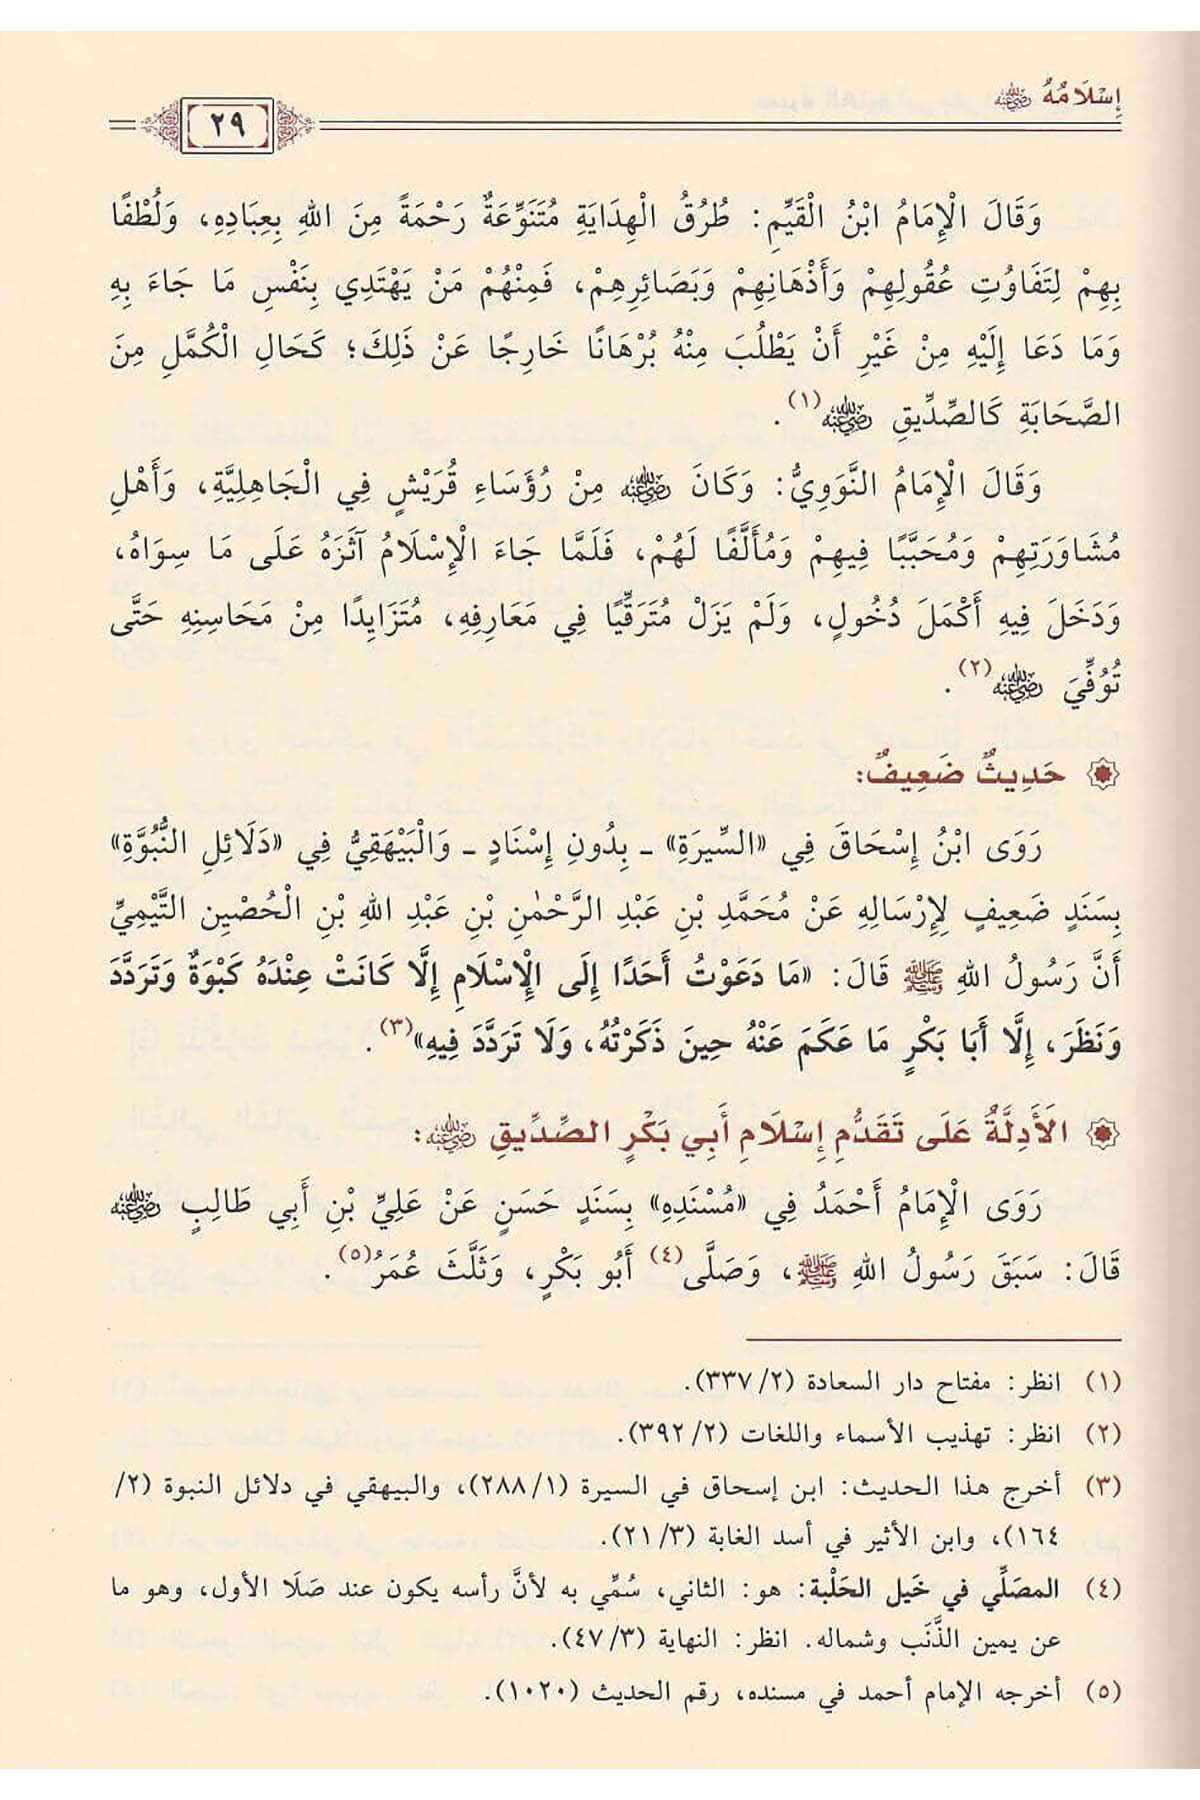 إِسْلَامُهُ رضي الله عنه
٢٩
وَقَالَ الْإِمَامُ ابْنُ الْقَيِّمِ: طُرُقُ الْهِدَايَةِ مُتَنَوِّعَةٌ رَحْمَةً مِنَ اللهِ بِعِبَادِهِ، وَلُطْفًا
بِهِمْ لِتَفَاوُتِ عُقُولِهِمْ وَأَذْهَانِهِمْ وَبَصَائِرِهِمْ، فَمِنْهُمْ مَنْ يَهْتَدِي بِنَفْسِ مَا جَاءَ بِهِ
وَمَا دَعَا إِلَيْهِ مِنْ غَيْرِ أَنْ يَطْلُبَ مِنْهُ بُرْهَانًا خَارِجًا عَنْ ذَلِكَ؛ كَحَالِ الْكُمَّلِ مِنَ
الصَّحَابَةِ كَالصِّدِّيقِ رضي الله عنه(١).
وَقَالَ الْإِمَامُ النَّوَوِيُّ: وَكَانَ رضي الله عنه مِنْ رُؤَسَاءِ قُرَيْشٍ فِي الْجَاهِلِيَّةِ، وَأَهْلِ
مُشَاوَرَتِهِمْ وَمُحَبَّبًا فِيهِمْ وَمُأَلَّفًا لَهُمْ، فَلَمَّا جَاءَ الْإِسْلَامُ آثَرَهُ عَلَى مَا سِوَاهُ،
وَدَخَلَ فِيهِ أَكْمَلَ دُخُولٍ، وَلَمْ يَزَلْ مُتَرَقِّيًا فِي مَعَارِفِهِ، مُتَزَايِدًا مِنْ مَحَاسِنِهِ حَتَّى
تُوُفِّيَ رضي الله عنه(٢).
حَدِيثٌ ضَعِيفٌ:
رَوَى ابْنُ إِسْحَاقَ فِي «السِّيرَةِ» ـ بِدُونِ إِسْنَادٍ ـ وَالْبَيْهَقِيُّ فِي «دَلَائِلِ النُّبُوَّةِ»
بِسَنَدٍ ضَعِيفٍ لِإِرْسَالِهِ عَنْ مُحَمَّدِ بْنِ عَبْدِ الرَّحْمٰنِ بْنِ عَبْدِ اللهِ بْنِ الْحُصْيِن التَّيْمِيِّ
أَنَّ رَسُولُ اللهِ ﷺ قَالَ: «مَا دَعَوْتُ أَحَدًا إِلَى الْإِسْلَامِ إِلَّا كَانَتْ عِنْدَهُ كَبْوَةٌ وَتَرَدَّدَ
وَنَظَرَ، إِلَّا أَبَا بَكْرٍ مَا عَكَمَ عَنْهُ حِينَ ذَكَرْتُهُ، وَلَا تَرَدَّدَ فِيهِ»(٣).
الْأَدِلَّةُ عَلَى تَقَدُّمِ إِسْلَامِ أَبِي بَكْرٍ الصِّدِّيقِ رضي الله عنه:
رَوَى الْإِمَامُ أَحْمَدُ فِي «مُسْنَدِهِ» بِسَنَدٍ حَسَنٍ عَنْ عَلِيِّ بْنِ أَبِي طَالِبٍ رضي الله عنه
قَالَ: سَبَقَ رَسُولُ اللهِ ﷺ، وَصَلَّى(٤) أَبُو بَكْرٍ، وَثَلَّثَ عُمَرُ(٥).
(١) انظر: مفتاح دار السعادة (٣٣٧/٢).
(٢) انظر: تهذيب الأسماء واللغات (٣٩٢/٢).
(٣) أخرج هذا الحديث: ابن إسحاق في السيرة (٢٨٨/١)، والبيهقي في دلائل النبوة (٢/
١٦٤)، وابن الأثير في أسد الغابة (٢١/٣).
(٤) المصَلِّي في خَيل الحَلْبة: هو: الثاني، سُمِّي به لأنَّ رأسه يكون عند صَلَا الأول، وهو ما
عن يمين الذَّنَب وشماله. انظر: النهاية (٤٧/٣).
(٥) أخرجه الإمام أحمد في مسنده، رقم الحديث (١٠٢٠).